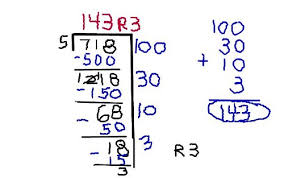 143 R3
5 718 100
-500
218 30
-150
68 10
- 50
18 3
- 15
3
R3
100
30
+ 10
3
143